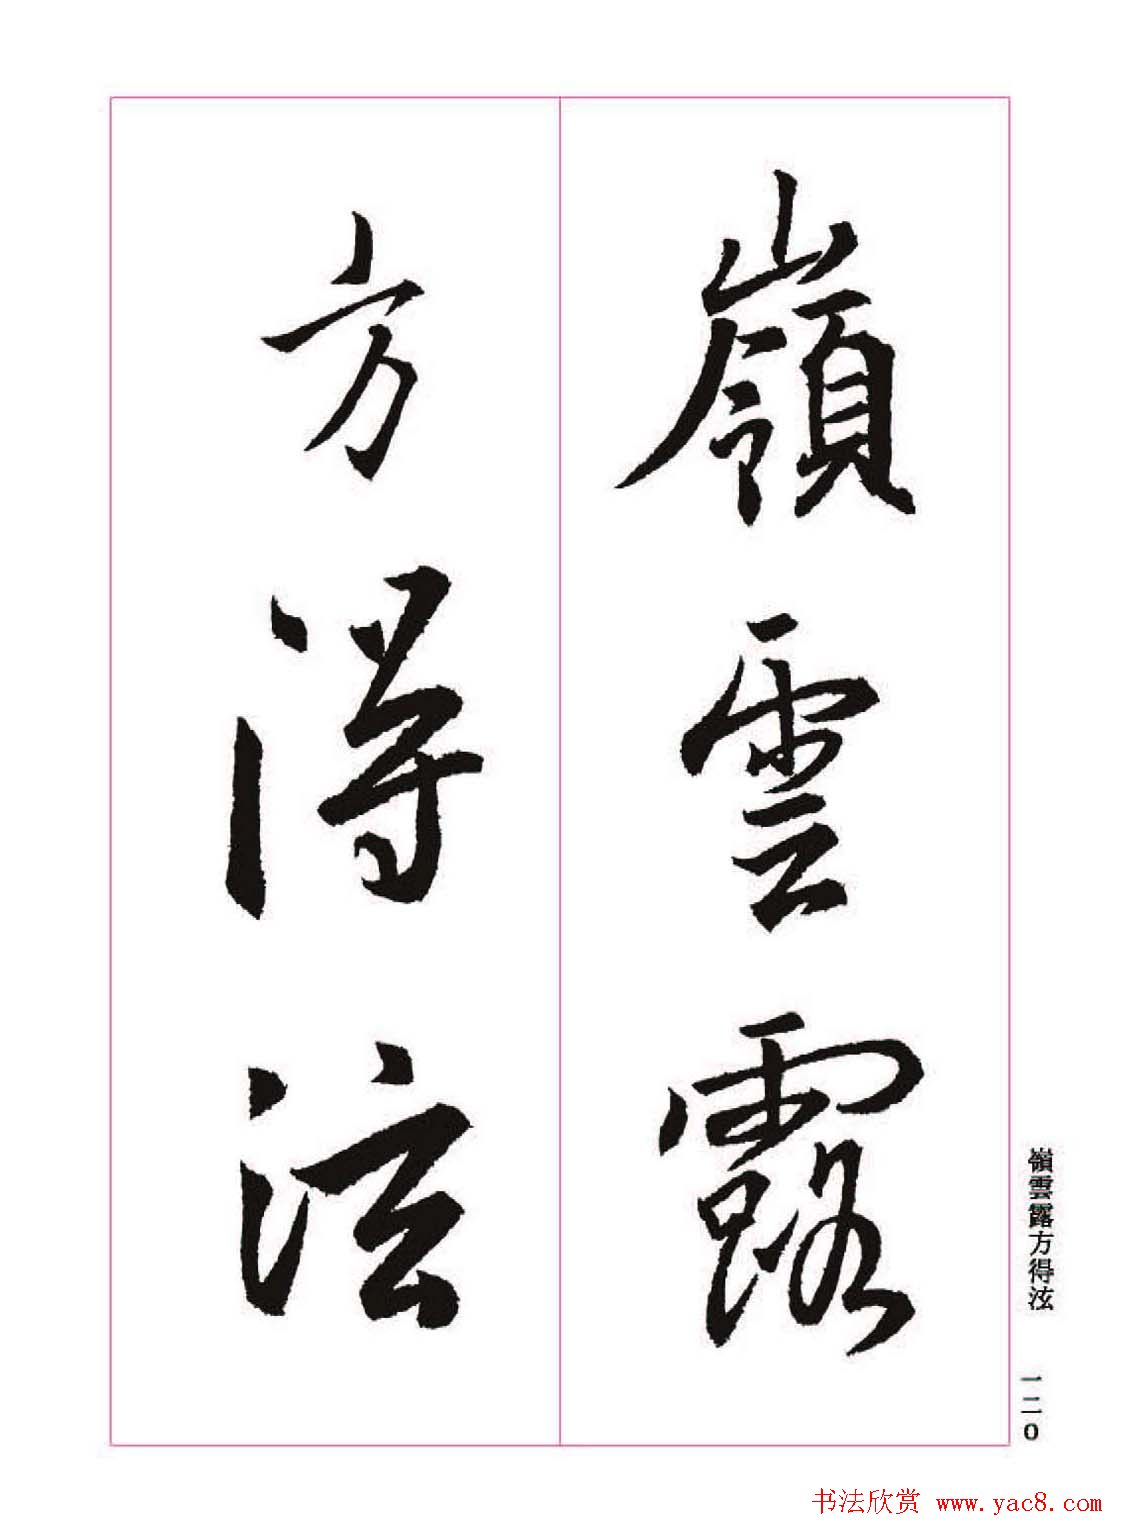 嶺雲露
方得泫
嶺雲露方得泫
一二0
书法欣赏 www.yac8.com